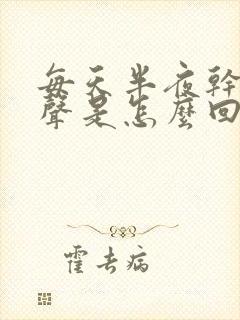 每天半夜幹
聲是怎麼回
霍去病